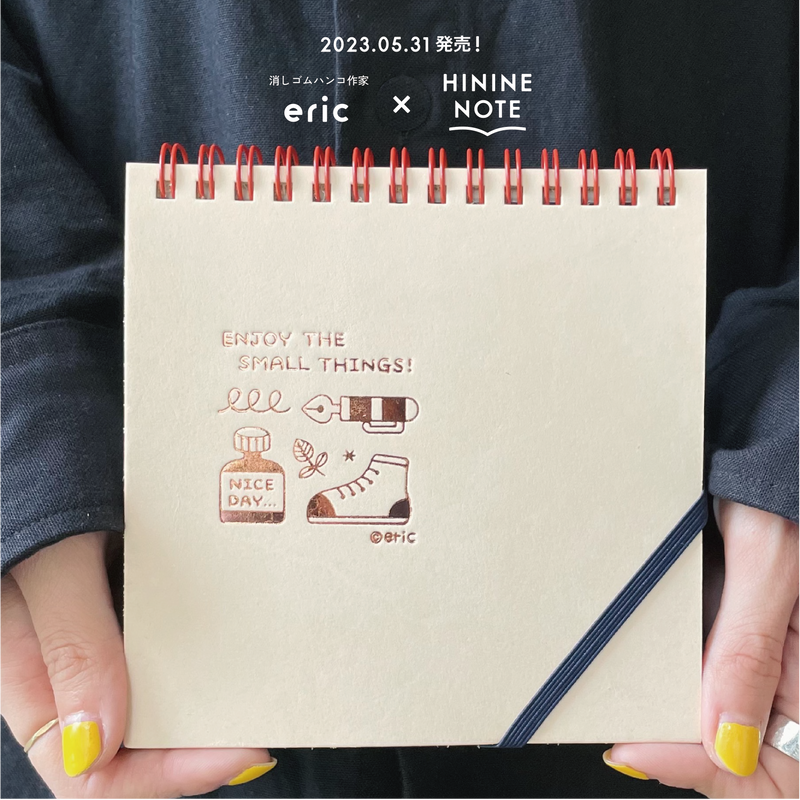 2023.05.31 発売!
消しゴムハンコ作家
eric
×
HININE
NOTE
ENJOY THE
SMALL THINGS!
NICE
DAY...
©eric